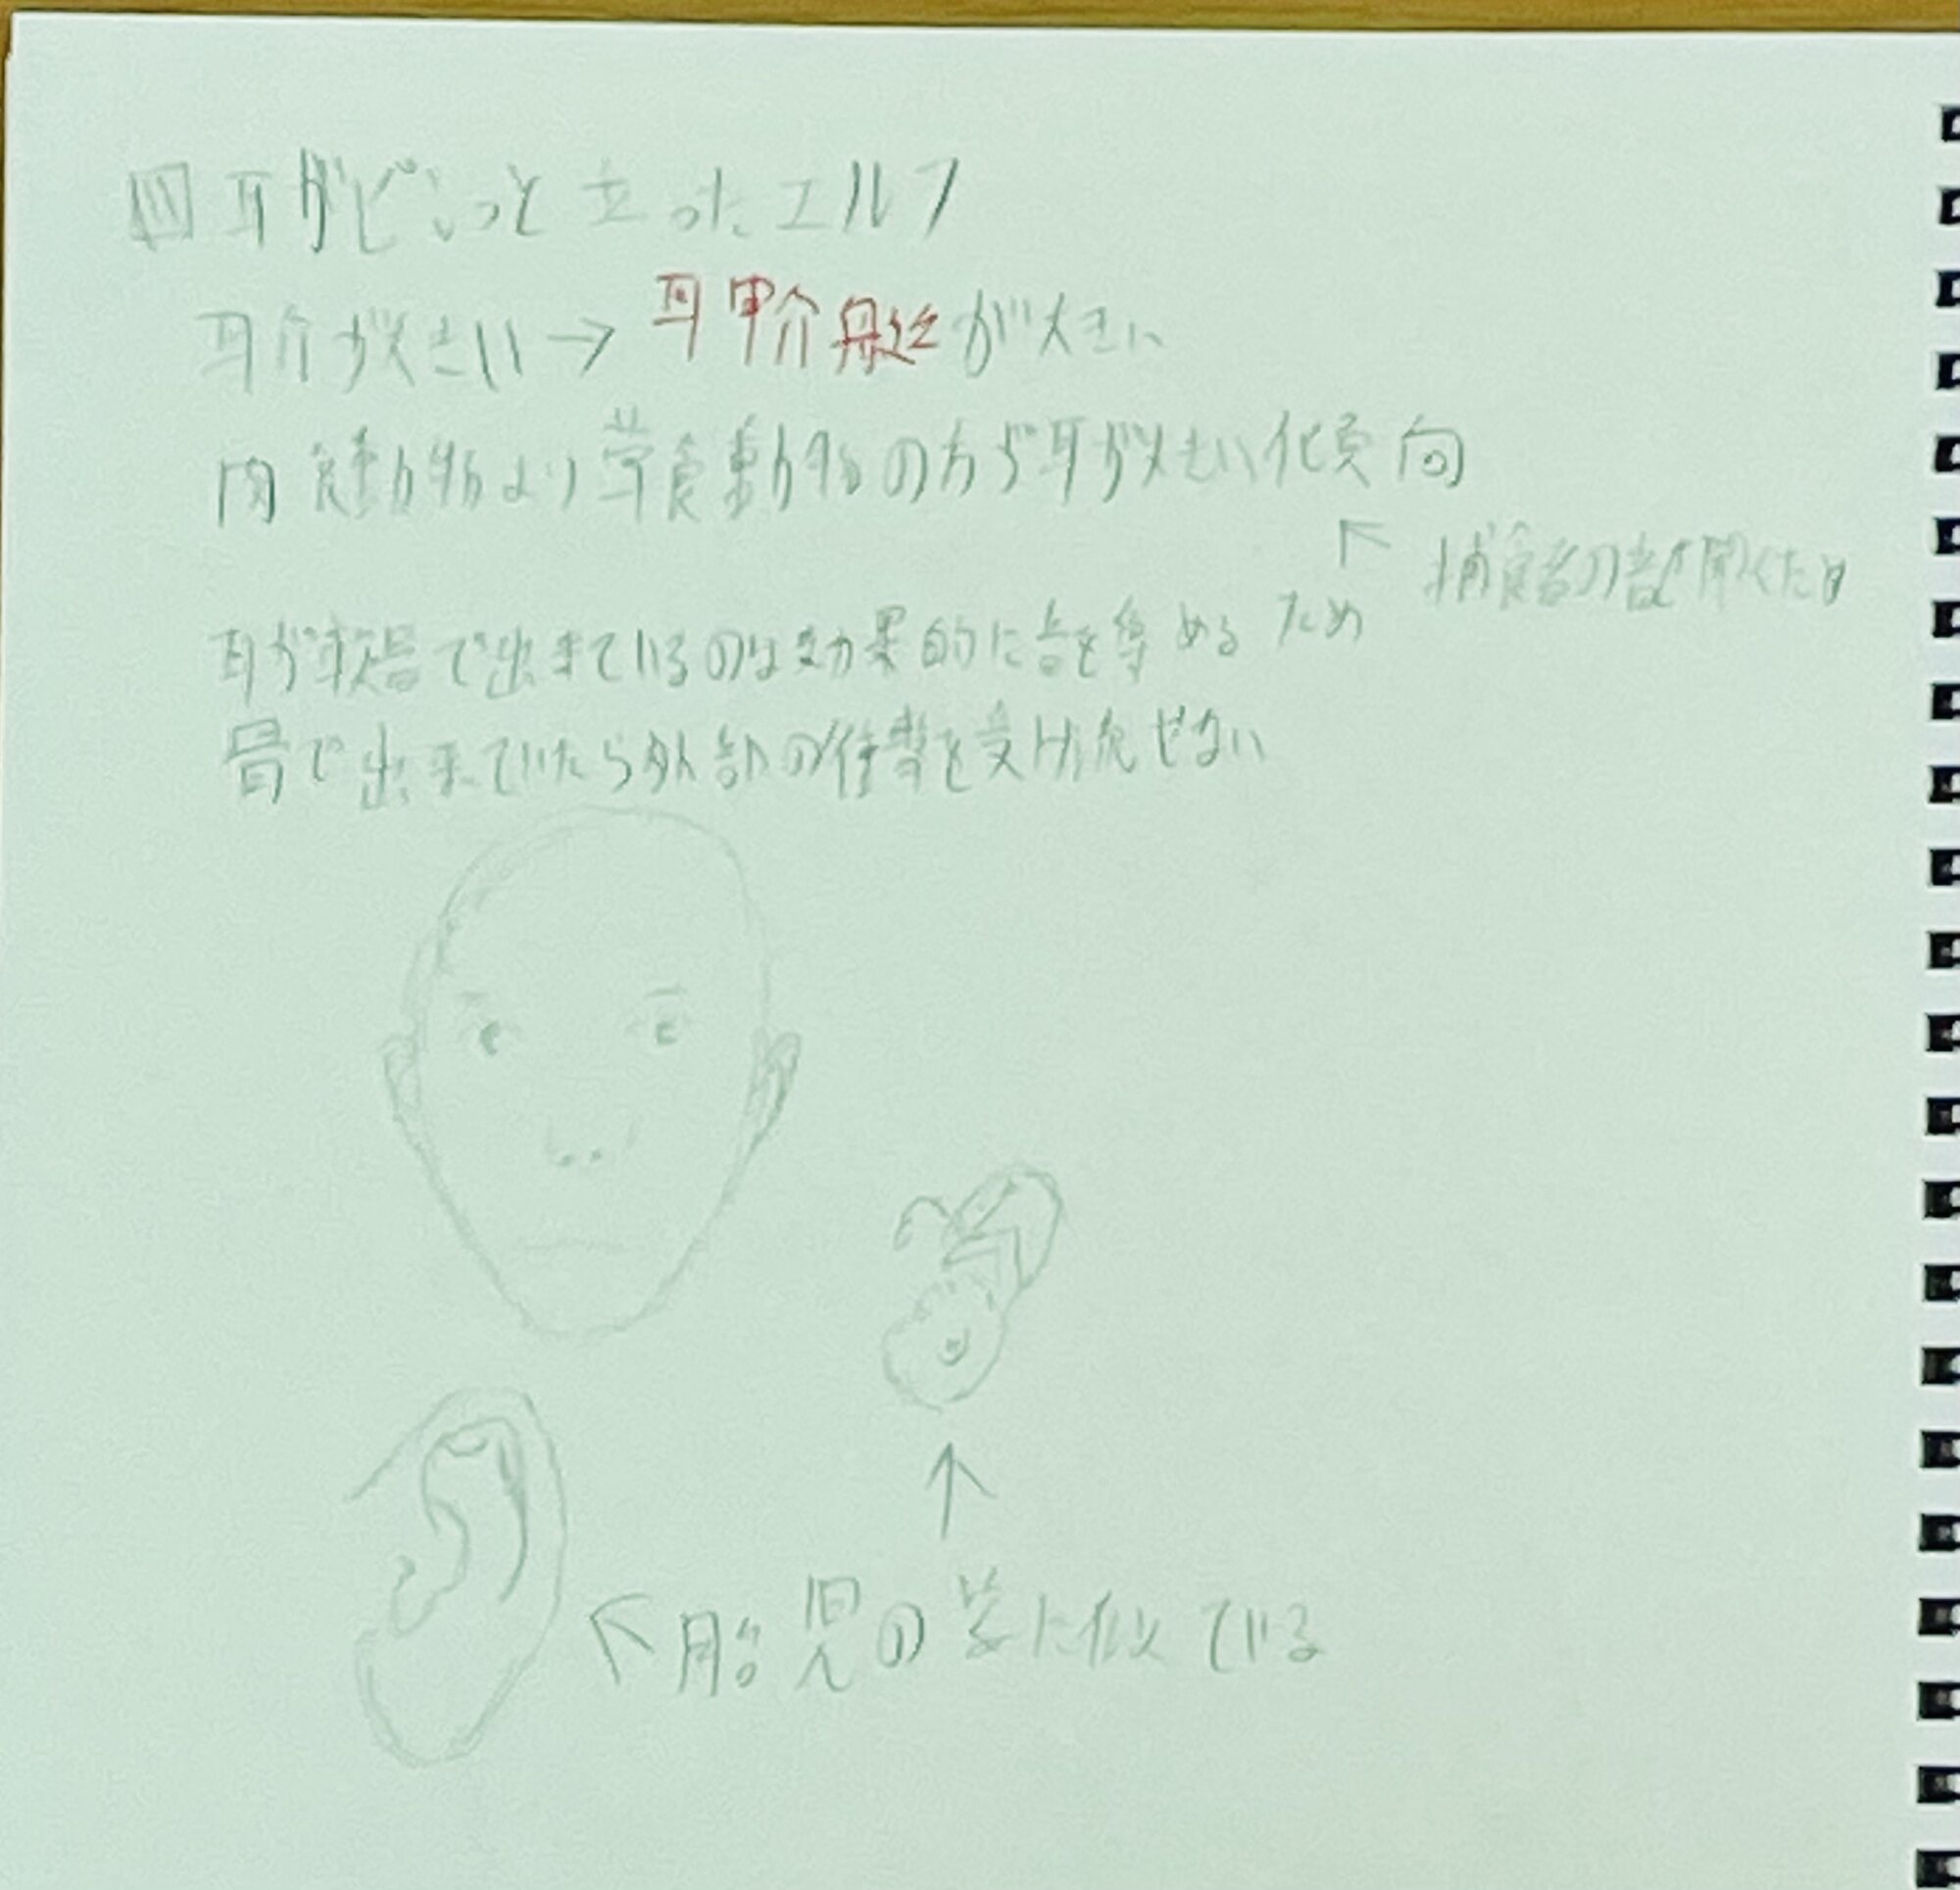 耳がピンっと立ったエルフ
耳介が大きい→耳甲介艇が大きい
肉食動物より草食動物の方が耳が大きい傾向
↖捕食者の音を聞くため
耳が軟骨で出来ているのは効果的に音を集めるため
骨で出来ていたら外部の衝撃を受け流せない
↑
↖胎児の姿に似ている